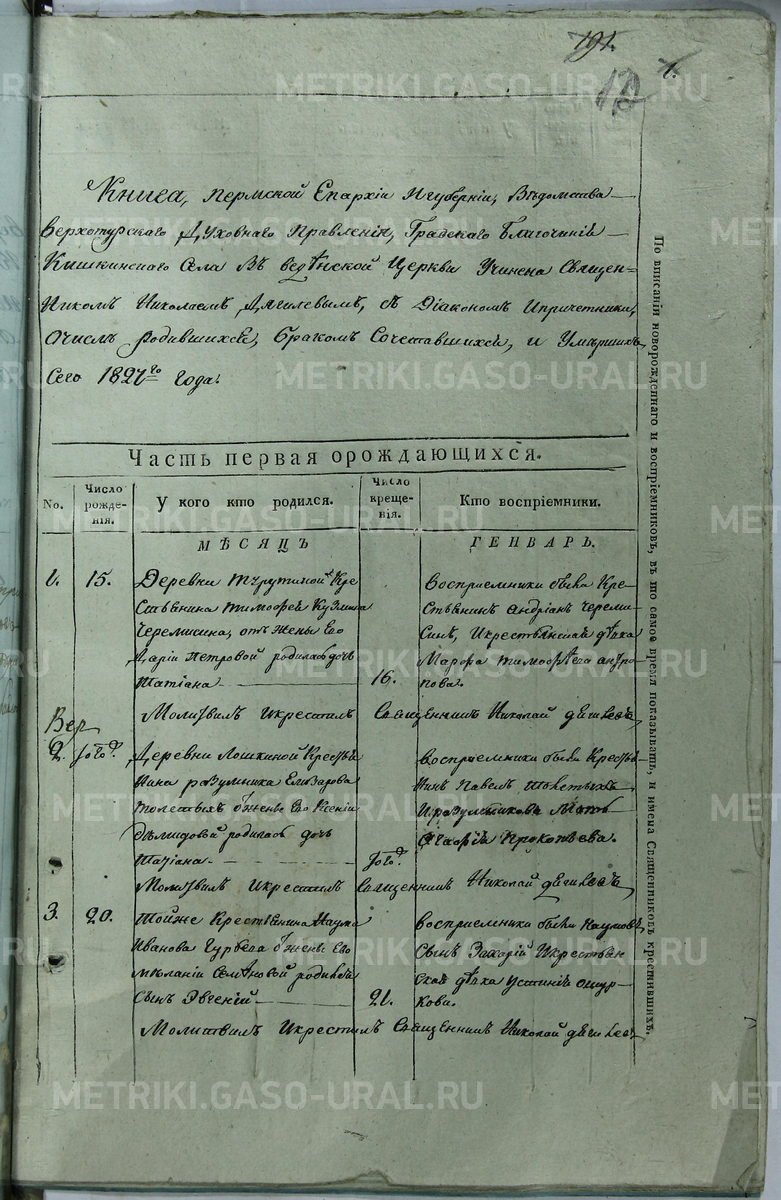 191.
1.
Книга, Пермской Епархіи Игуберніи, Вѣдомства
Верхотурскаго Духовнаго Правленія, Градскаго благочинія
Кишкинскаго Села Въ веденской Церкви Учинена Священ-
Никомъ Николаемъ Дягилевымъ, съ Діакономъ Ипричетники,
Очислѣ родившихся, бракомъ Сочетавшихся, и Умершихъ
Сего 1827го года:
Часть первая орождающихся.
No.
Число рожде- нія.
У кого кто родился.
Число креще- нія.
Кто воспріемники.
МѢСЯЦЪ
ГЕНВАРЬ.
1. 15. Деревни Кре
Стьянина Тимофея Кузмина
Черемисина, отъ Жены Его
Даріи Петровой родилась дочь
Татіана 16.
Восприемники были Кре-
Стьянинъ Андріанъ Череми-
Синъ, Икрестьянская дѣвка
Марфа Тимофѣева
Молитвилъ Икрестилъ Священникъ Николай Дягилевъ
2. Деревни Лошкиной Крестья
Нина Елизарова
Толстыхъ Жены Его Ксеніи
Демидовой родилась дочь
Татіана
Восприемники были Крестья
Нинъ Павелъ Толстыхъ
Мать
Агафія Прокопьева.
Молитвилъ Икрестилъ Священникъ Николай Дягилевъ
3. 20. Тойже Крестьянина Наума
Иванова Жены Его
Меланіи Семеновой родился
Сынъ Эвгеній 21.
Восприемники были Наумовъ
Сынъ Захарій Икрестьян
Ская дѣвка Устинія Ошур-
кова.
Молитвилъ Икрестилъ Священникъ Николай Дягилевъ
По вписаніи новорожденнаго и воспріемниковъ, въ то самое время показывать, и имена Священниковъ крестившихъ.
METRIKI.GASO-URAL.RU